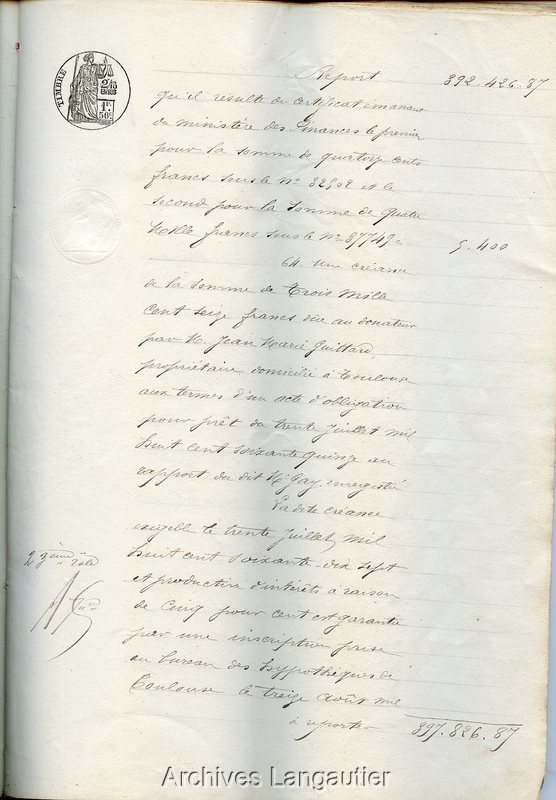 TIMBRE
2/10 EN SUS
1F. 50c
Report 392.426.87
qu'il résulte du certificat émanant
du ministère des Finances le premier
pour la somme de quatorze cents
francs sous le No 32502 et le
second pour la somme de quatre
Mille francs sous le No 37749. 5.400
64. Une créance
de la somme de Trois Mille
cent seize francs due au donateur
par M. Jean Marie Guittard,
propriétaire domicilié à Toulouse
aux termes d'un acte d'obligation
pour prêt du trente Juillet mil
huit cent soixante quinze au
rapport du dit Me Gay enregistré
La dite créance
exigible le trente Juillet mil
huit cent soixante-dix sept
et productive d'intérêts à raison
de Cinq pour cent est garantie
par une inscription prise
au bureau des hypothèques de
Toulouse le treize août mil
à reporter 397.826.87
rôle
Archives Langautier